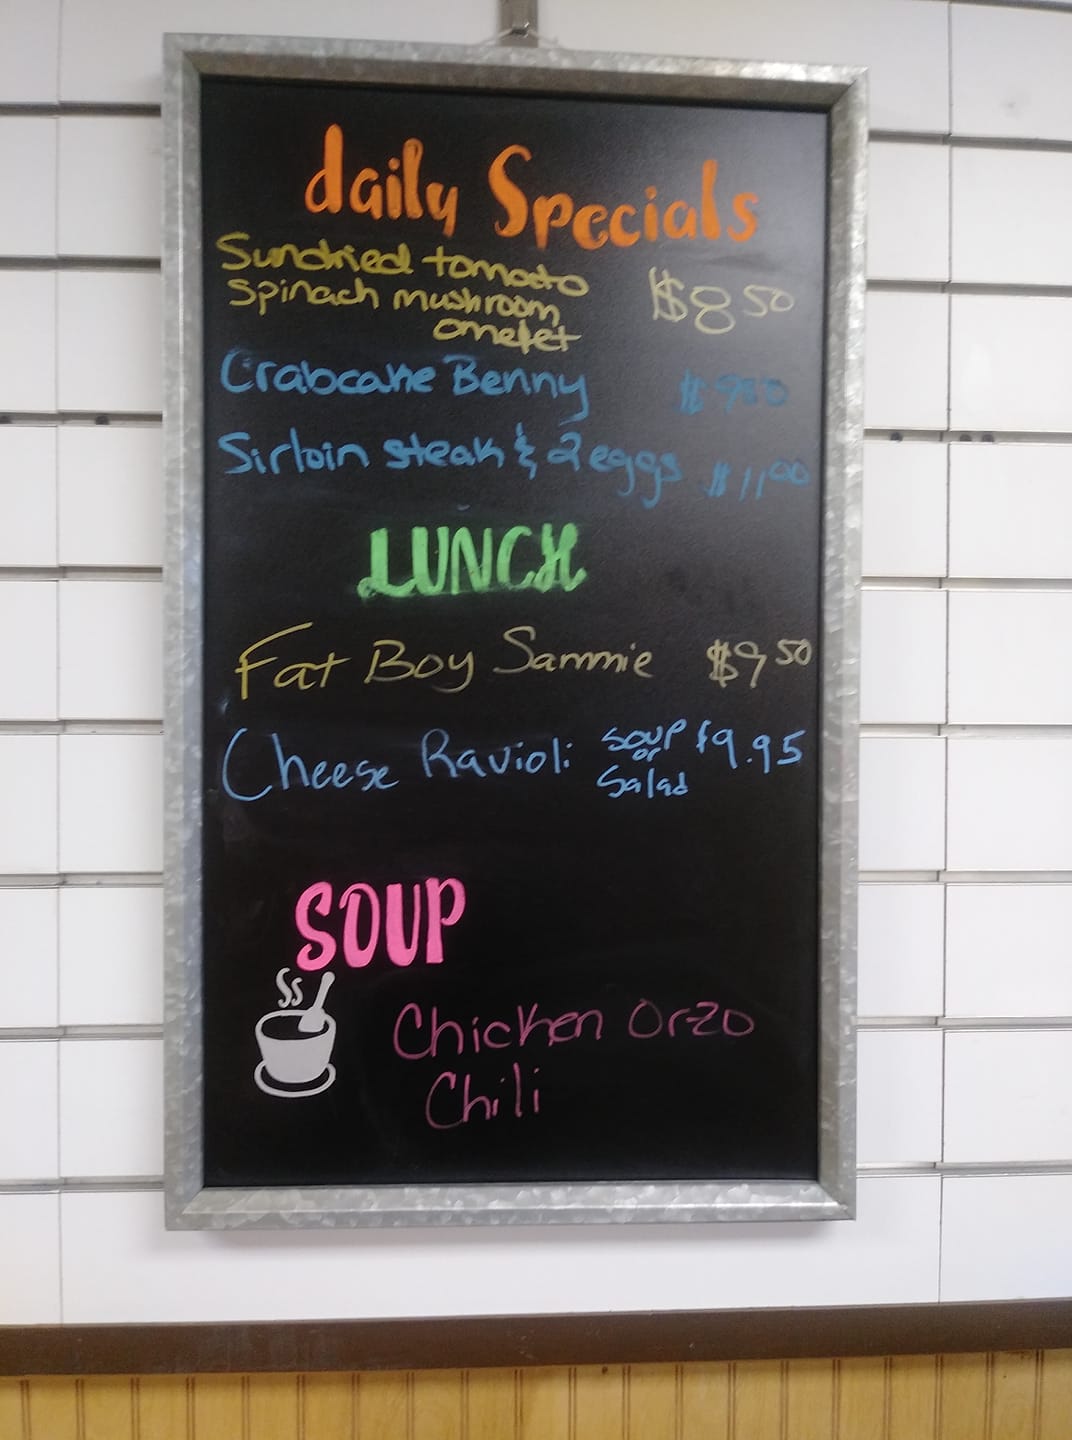 daily Specials
Sundried tomato
Spinach mushroom $8 50
omelet
Crabcake Benny
Sirloin steak & 2 eggs $11 00
LUNCH
Fat Boy Sammie $9 50
Cheese Ravioli soup or salad $9.95
SOUP
Chicken Orzo
Chili